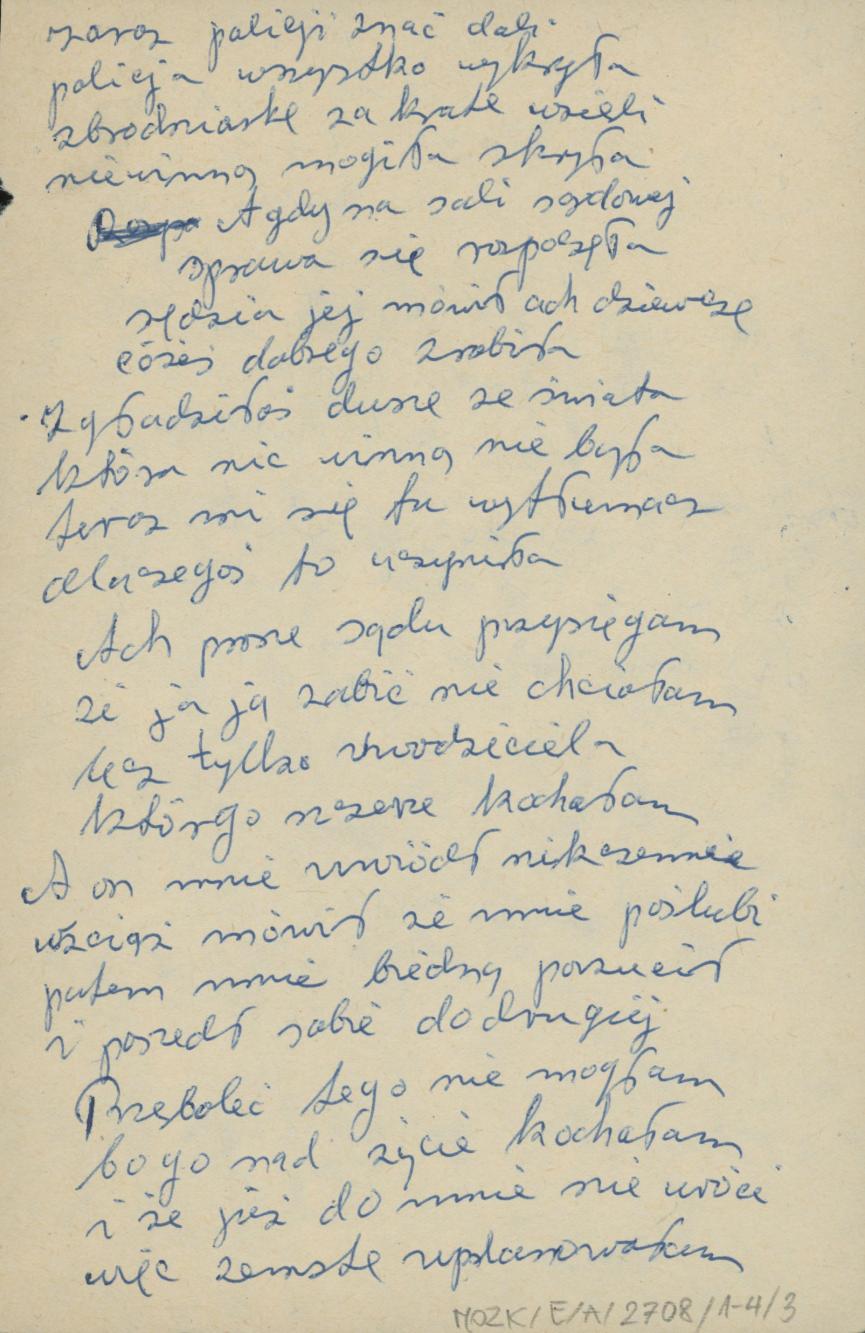 zaraz policji znać dali
policja wszystko wykryła
zbrodniarkę za kratę wzieli
niewinną mogiła skryła
A gdy na sali sądowej
sprawa się rozpoczęła
sędzia jej mówił ach dziewczę
cóżeś dobrego zrobiła
Zgładziłaś duszę ze świata
która nic winną nie była
teraz mi się tu wytłumacz
dlaczegoś to uczyniła
Ach proszę sądu przysięgam
że ja ją zabić nie chciałam
lecz tylko uwodziciela
którgo szczerze kochałam
A on mnie uwiódł nikczemnie
wciąż mówił że mnie poślubi
potem mnie biedną porzucił
i poszedł sobie do drugiej
Przeboleć tego nie mogłam
bo go nad życie kochałam
i że już do mnie nie wróci
więc zemstę uplanowałam
MOZK/E/A/2708/1-4/3